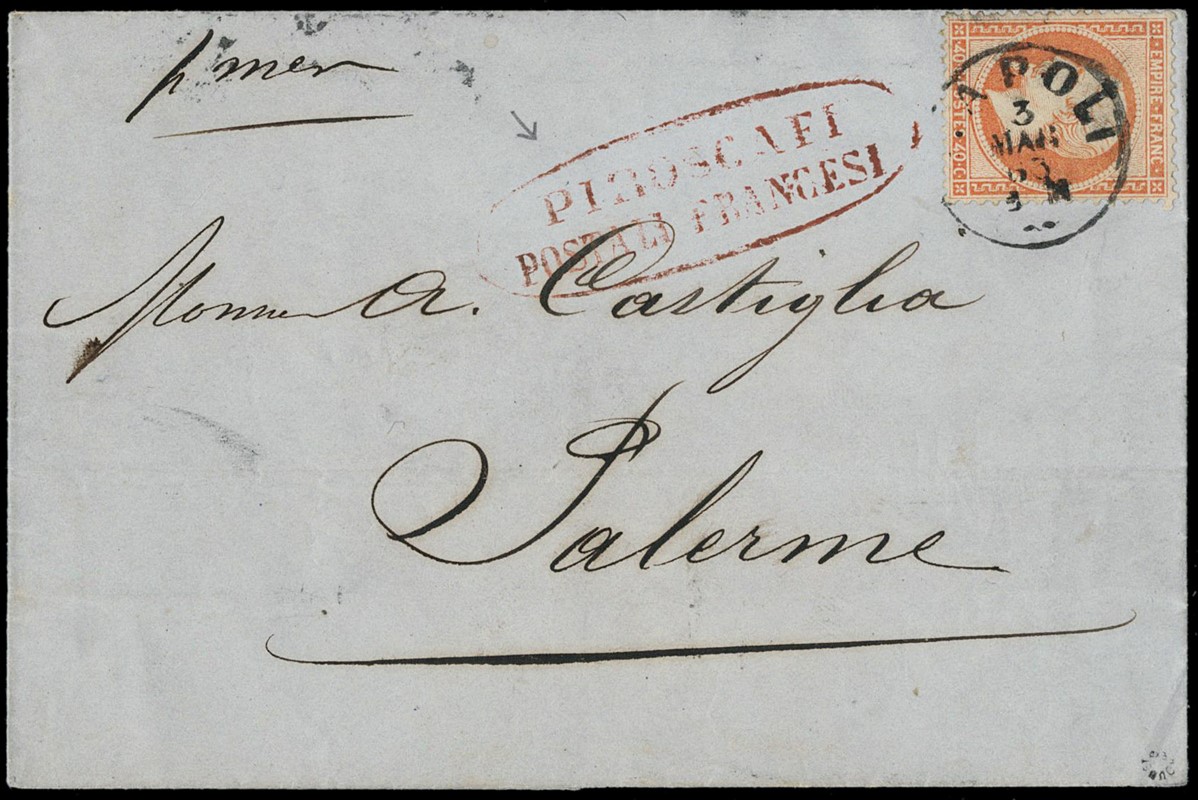 p mer
PIROSCAFI
POSTALI FRANCESI
EMPIRE FRANC
40 C
POSTES 40 C
APOLI
3
MAR
63
A. Castiglia
Palerme